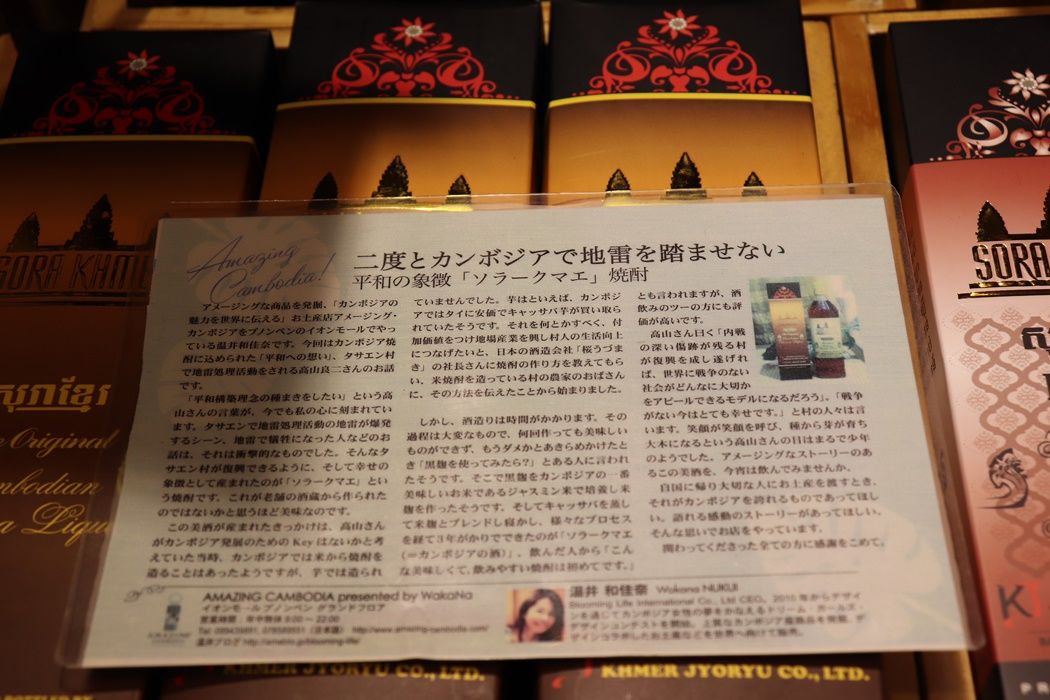 SORA KHM
SORA
សុរាខ្មែរ
Original
Cambodian
KHMER JYORYU CO., LTD.
KHMER JYORYU CO., LTD.
Amazing Cambodia!
二度とカンボジアで地雷を踏ませない
平和の象徴「ソラークマエ」焼酎
アメージングな商品を発掘、「カンボジアの
魅力を世界に伝える」お土産店アメージング・
カンボジアをプノンペンのイオンモールでやっ
ている温井和佳奈です。今回はカンボジア焼
酎に込められた「平和への想い」、タサエン村
で地雷処理活動をされる高山良二さんのお話
です。
「平和構築理念の種まきをしたい」という高
山さんの言葉が、今でも私の心に刻まれてい
ます。タサエンで地雷処理活動の地雷が爆発
するシーン、地雷で犠牲になった人などのお
話は、それは衝撃的なものでした。そんなタ
サエン村が復興できるように、そして幸せの
象徴として産まれたのが「ソラークマエ」とい
う焼酎です。これが老舗の酒蔵から作られた
のではないかと思うほど美味なのです。
この美酒が産まれたきっかけは、高山さん
がカンボジア発展のための Key はないかと考
えていた当時、カンボジアでは米から焼酎を
造ることはあったようですが、芋では造られ
ていませんでした。芋はといえば、カンボジ
アではタイに安価でキャッサバ芋が買い取ら
れていたそうです。それを何とかすべく、付
加価値をつけ地場産業を興し村人の生活向上
につなげたいと、日本の酒造会社「桜うづま
き」の社長さんに焼酎の作り方を教えてもら
い、米焼酎を造っている村の農家のおばさん
に、その方法を伝えたことから始まりました。
しかし、酒造りは時間がかかります。その
過程は大変なもので、何回作っても美味しい
ものができず、もうダメかとあきらめかけたと
き「黒麹を使ってみたら?」とある人に言われ
たそうです。そこで黒麹をカンボジアの一番
美味しいお米であるジャスミン米で培養し米
麹を作ったそうです。そしてキャッサバを蒸し
て米麹とブレンドし寝かし、様々なプロセス
を経て3年がかりでできたのが「ソラークマエ
(=カンボジアの酒)」。飲んだ人から「こん
な美味しくて、飲みやすい焼酎は初めてです。」
とも言われますが、酒
飲みのツーの方にも評
価が高いです。
高山さん曰く「内戦
の深い傷跡が残る村
が復興を成し遂げれ
ば、世界に戦争のない
社会がどんなに大切か
をアピールできるモデルになるだろう」。「戦争
がない今はとても幸せです。」と村の人々は言
います。笑顔が笑顔を呼び、種から芽が育ち
大木になるという高山さんの目はまるで少年
のようでした。アメージングなストーリーのあ
るこの美酒を、今宵は飲んでみませんか。
自国に帰り大切な人にお土産を渡すとき、
それがカンボジアを誇れるものであってほし
い。語れる感動のストーリーがあってほしい。
そんな思いでお店をやっています。
関わってくださった全ての方に感謝をこめて。
AMAZING CAMBODIA presented by WakaNa
イオンモールプノンペン グランドフロア
営業時間:年中無休 9:00 ~ 22:00
http://www.amazing-cambodia.com/
温井ブログ http://ameblo.jp/blooming-life/
温井 和佳奈 Wakana NUKUI
Blooming Life International Co., Ltd CEO。2010 年からデザイ
ンを通じてカンボジア女性の夢をかなえるドリーム・ガールズ・
デザインコンテストを開始。上質なカンボジア産商品を発掘、デ
ザインコラボしたお土産などを世界へ向けて販売。